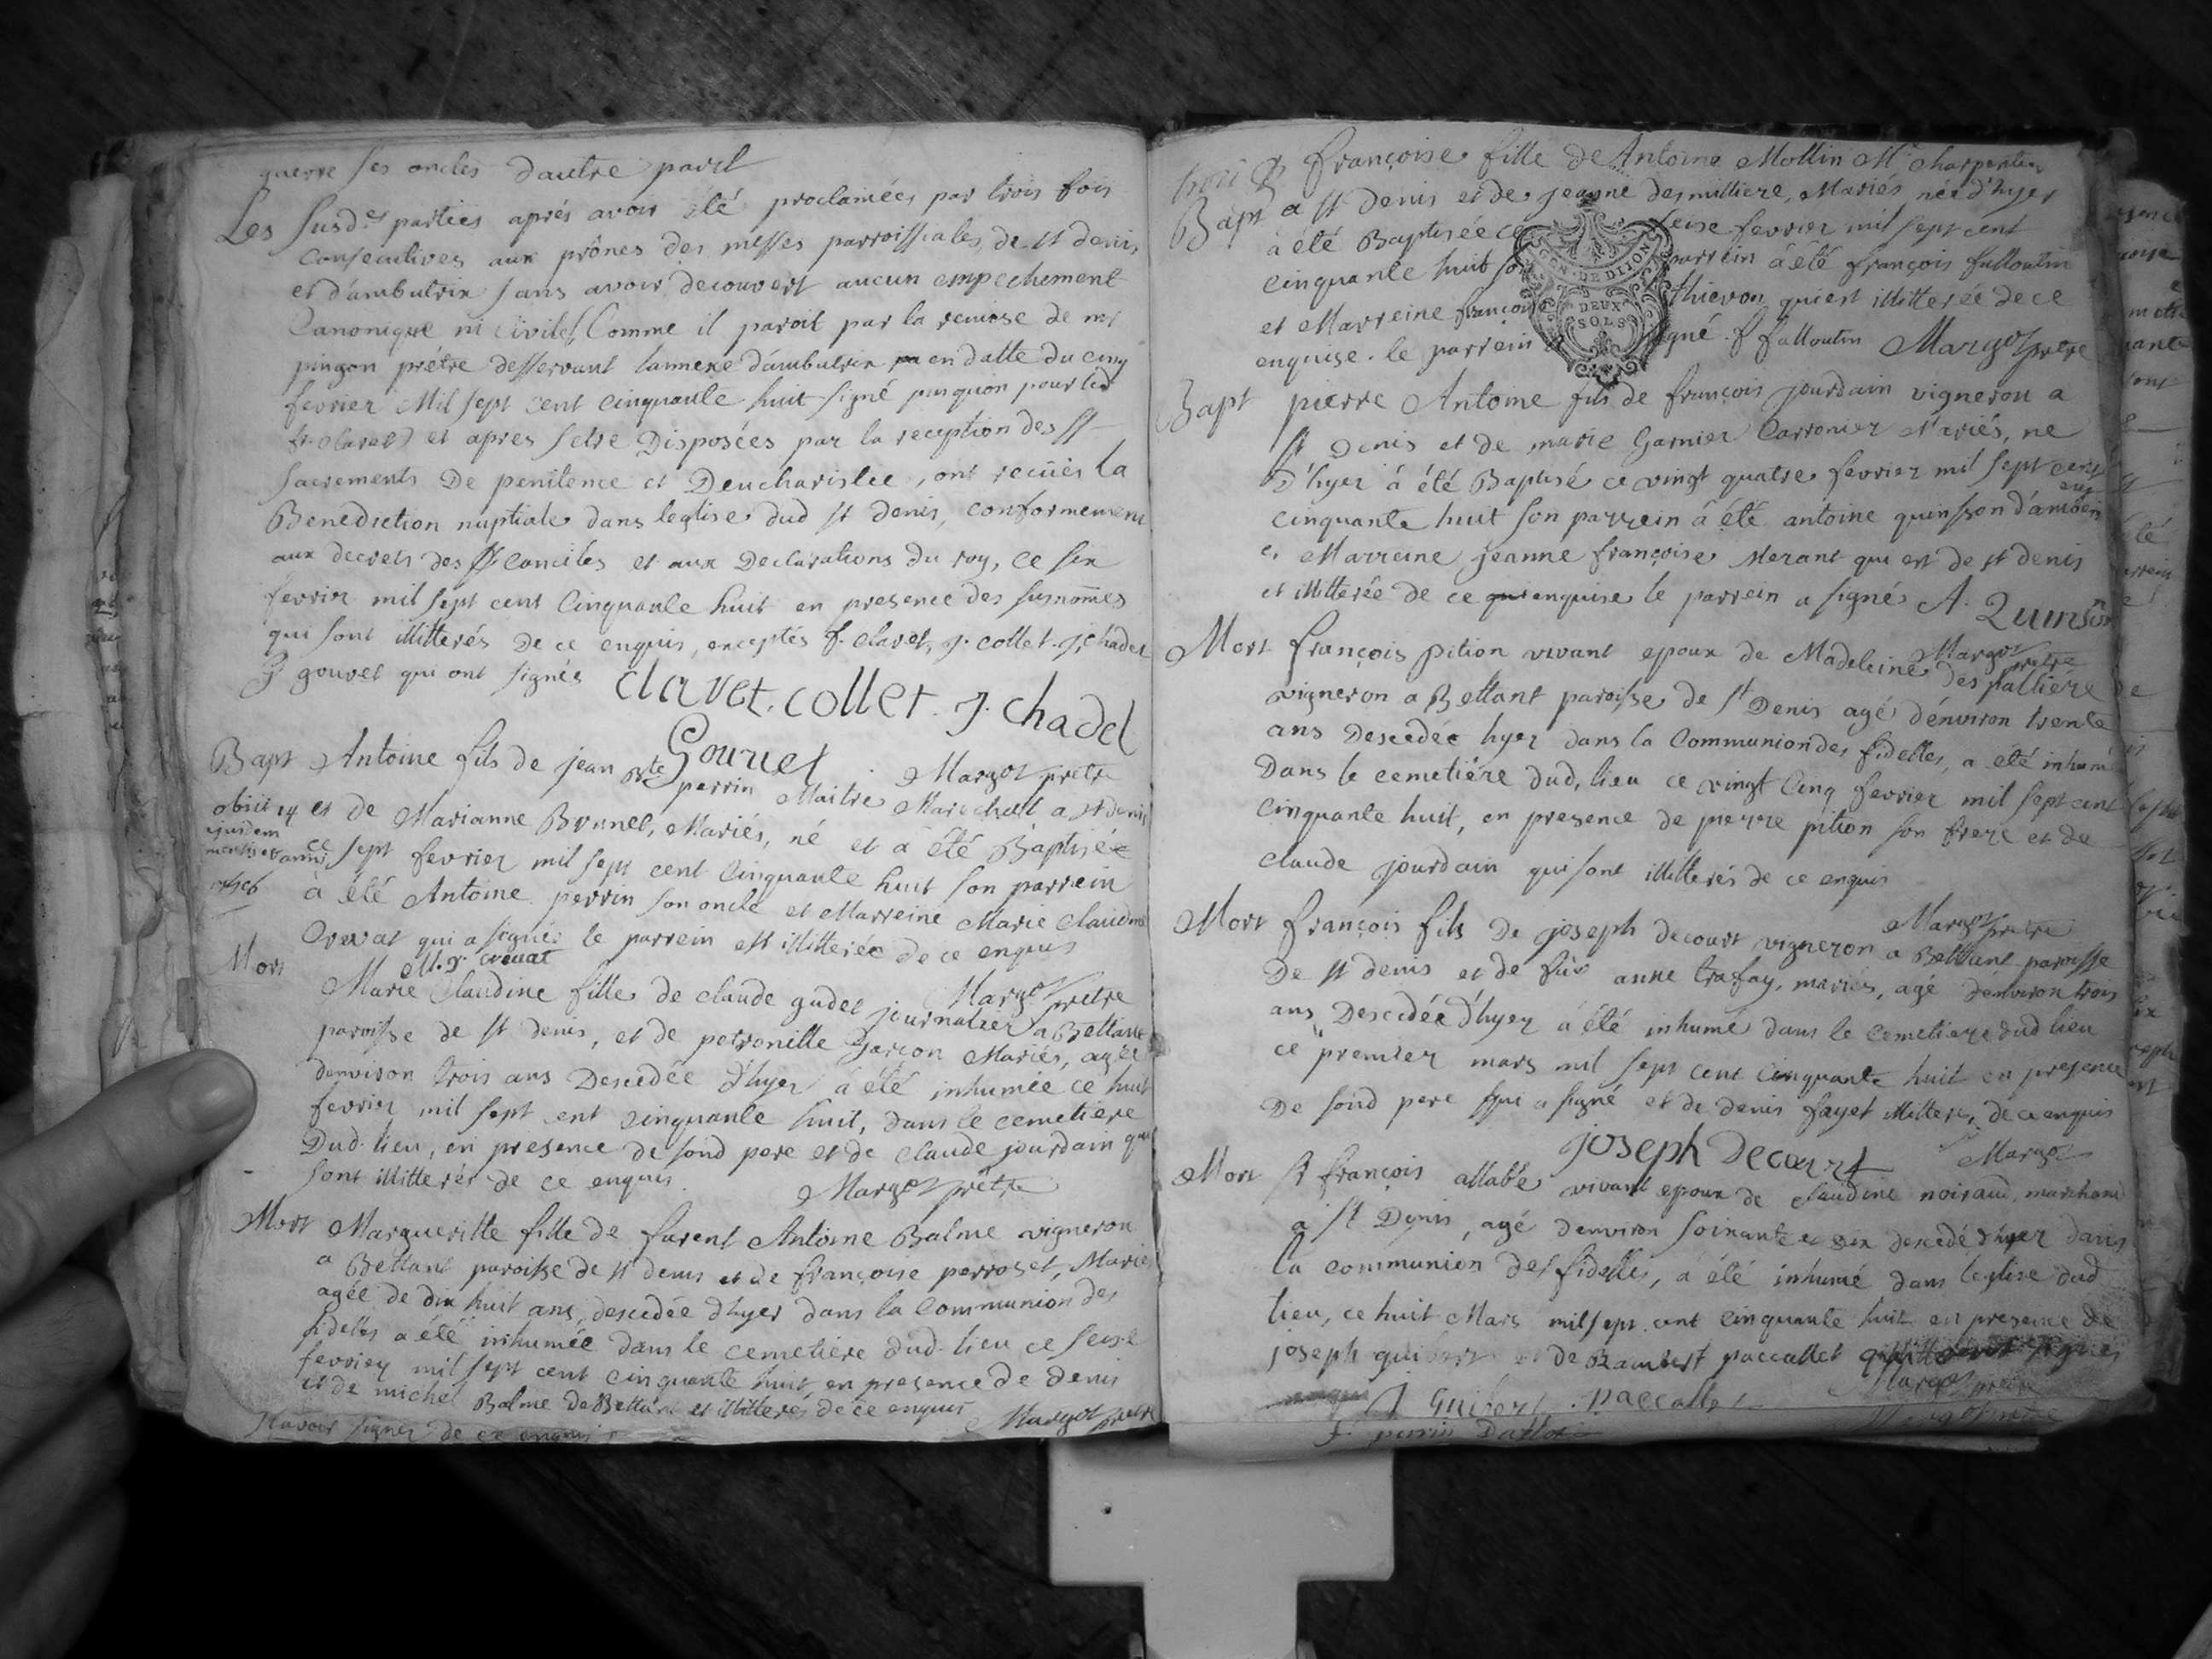 guerre ses oncles d'autre part
Les susd.es parties aprés avoir été proclamées par trois fois
consecutives aux prônes des messes parroissiales de st denis
et d'ambutrix sans avoir decouvert aucun empechement
Canonique ni civiles, Comme il paroit par la remise de mr
pingon prétre desservant lannexe d'ambutrix en datte du cinq
fevrier Mil sept cent cinquante huit signé pinquon pour led
fr. Clavet) et apres setre Disposées par la reception des ss
sacrements De penitence et Deucharistie, ont recües la
Benediction nuptiale dans leglise dud st denis, conformement
aux decrets des ss conciles et aux Declarations du roy, ce six
fevrier mil sept cent Cinquante huit en presence des susnommes
qui sont illitterés De ce enquis, exceptés f. clavet, J. collet. J. chadel
J gouvet qui ont signés clavet. collet. J. chadel
Gouvet Margot prétre
Bapt Antoine fils de jean Bte perrin Maitre Marechall a st denis
obiit 14 et de Marianne Brunel, Mariés, né et a été Baptisé
ejusdem mensis et anni ce sept fevrier mil sept cent Cinquante huit son parrein
à été Antoine perrin son oncle et Marreine Marie Claudine
Crevat qui a signée le parrein est illitterée de ce enquis
M. J. crevat Margot prétre
Mort Marie Claudine fille de claude gudet journalier a Bettant
paroisse de st denis, et de petronille Garçon Mariés, agée
denviron trois ans Descedée d'hyer à été inhumée ce huit
fevrier mil sept cent cinquante huit, dans le cemetiere
Dud. lieu, en presence de sond pere et de claude jourdain qui
sont illitterés de ce enquis. Margot prétre
Mort Margueritte fille de furent Antoine Balme vigneron
a Bettant paroisse de st denis et de françoise perroset, Mariés
agée de dix huit ans, descedée d'hyer dans la Communion des
fidelles a été inhumée dans le cemetiere dud. lieu ce seise
fevrier mil sept cent cinquante huit, en presence de denis
et de michel Balme de Bettant et illitterés de ce enquis Margot prétre
signer de ce enquis
françoise fille de Antoine Mollin Mr charpentier
Bapt a st Denis et de jeanne desmilliere, Mariés, née d'hyer
à été Baptisée ce seise fevrier mil sept cent
Cinquante huit son parrein à été françois falloutin
et Marreine françoise thievon qui est illitterée de ce
enquise. le parrein a signé. f falloutin Margot prétre
GEN. DE DIJON
DEUX
SOLS
Bapt pierre Antoine fils de françois jourdain vigneron a
st Denis et de marie Garnier Carronier Mariés, ne
D'hyer à été Baptisé ce vingt quatre fevrier mil sept cent
cinquante huit son parrein à été antoine quinson d'amberieu
et Marreine jeanne françoise Merant qui est de st denis
et illitterée de ce enquise le parrein a signé A. Quinson
Margot prétre
Mort françois pition vivant epoux de Madeleine des palliere
vigneron a Bettant paroisse de st Denis agé d'environ trente
ans Descedée hyer dans la Communion des fidelles, a été inhumé
Dans le cemetiére dud, lieu ce vingt Cinq fevrier mil sept cent
Cinquante huit, en presence de pierre pition son frere et de
claude jourdain qui sont illitterés de ce enquis
Margot prétre
Mort françois fils De joseph decourt vigneron a Bettant paroisse
De st denis et de anne trafay, mariés, agé denviron trois
ans Descedée d'hyer à été inhumé dans le cemetiere dud lieu
ce premier mars mil sept cent Cinquante huit en presence
De sond pere qui a signé et de denis fayet illitteré, de ce enquis
joseph Decourt Margot
Mort Sr françois allabé vivant epoux de claudine noiraud, marchand
à st Denis, agé denviron soixante et dix descedé d'hyer dans
la communion des fidelles, à été inhumé dans leglise dud
lieu, ce huit Mars mil sept cent Cinquante huit en presence de
joseph guibert et de Rambert paccallet
J Guibert. Paccallet Margot prétre